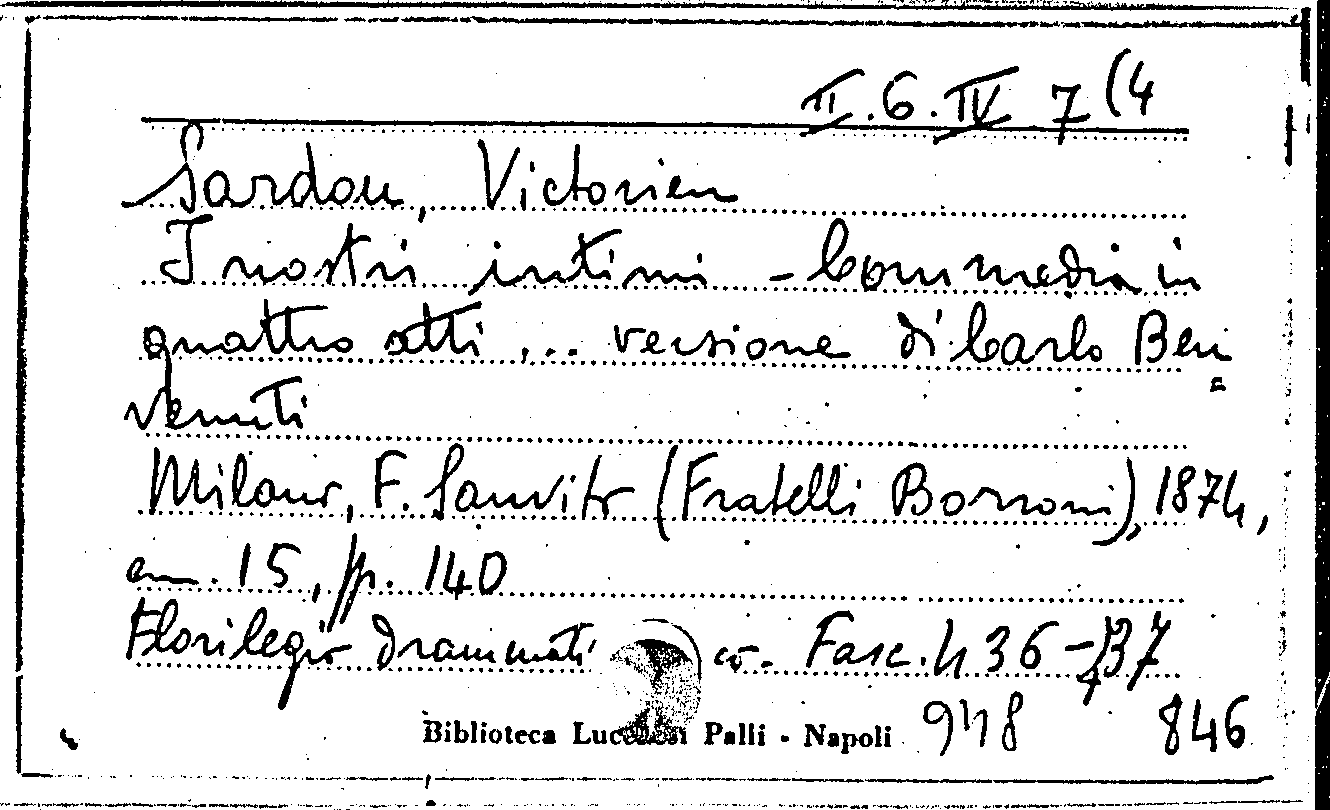 II.6.IV 7 (4
Sardou, Victorien
I nostri intimi - Commedia in
quattro atti ... versione di Carlo Ben=
venuti
Milano, F. Sanvito (Fratelli Borroni), 1874,
cm. 15, pp. 140
Florilegio drammatico. Fasc. 436-437
Biblioteca Lucchesi Palli - Napoli 948 846